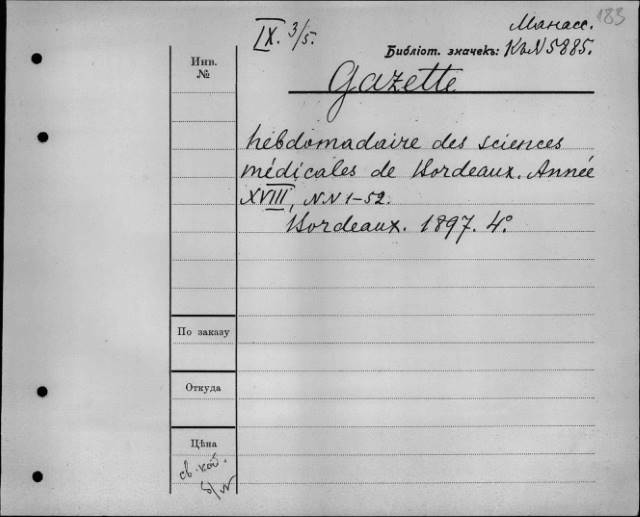 183
IX. 3/5.
Манасс.
Библіот. значекъ: К№ N 5885.
Инв.
№
Gazette
hebdomadaire des sciences
médicales de Bordeaux. Année
XVIII, NN 1-52.
Bordeaux. 1897. 4°.
По заказу
Откуда
Цѣна
св. кой.